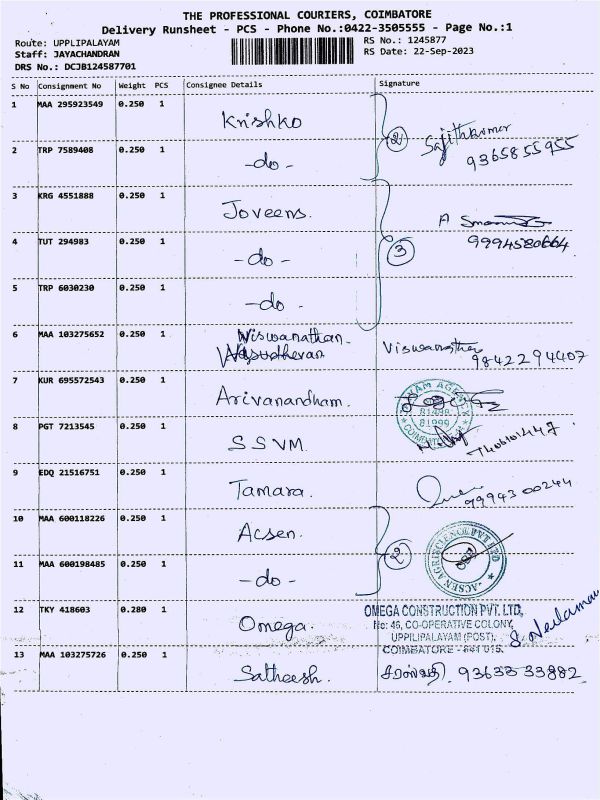 THE PROFESSIONAL COURIERS, COIMBATORE
Delivery Runsheet - PCS - Phone No.:0422-3505555 - Page No.:1
Route: UPPLIPALAYAM RS No.: 1245877
Staff: JAYACHANDRAN RS Date: 22-Sep-2023
DRS No.: DCJB124587701
S No Consignment No Weight PCS Consignee Details Signature
1 MAA 295923549 0.250 1 Krishko
2 Sajithkumar
2 TRP 7589408 0.250 1 -do- 9365855955
3 KRG 4551888 0.250 1 Joveens. A
4 TUT 294983 0.250 1 -do- 3 9994580664
5 TRP 6030230 0.250 1 -do-.
6 MAA 103275652 0.250 1 Wiswanathan Viswanathan
Vasudhevan 9842294407
7 KUR 695572543 0.250 1 Arivanandham.
81999
8 PGT 7213545 0.250 1 SSVM. 7406101447.
9 EDQ 21516751 0.250 1 Tamara. 9994300244
10 MAA 600118226 0.250 1 Acsen.
ACSEN AGRISCIENCE PVT LTD
11 MAA 600198485 0.250 1 -do- 2
12 TKY 418603 0.280 1 Omega.
OMEGA CONSTRUCTION PVT. LTD,
No: 46, CO-OPERATIVE COLONY,
UPPILIPALAYAM (POST),
COIMBATORE - 641 015.
13 MAA 103275726 0.250 1 Satheesh. 9363333882